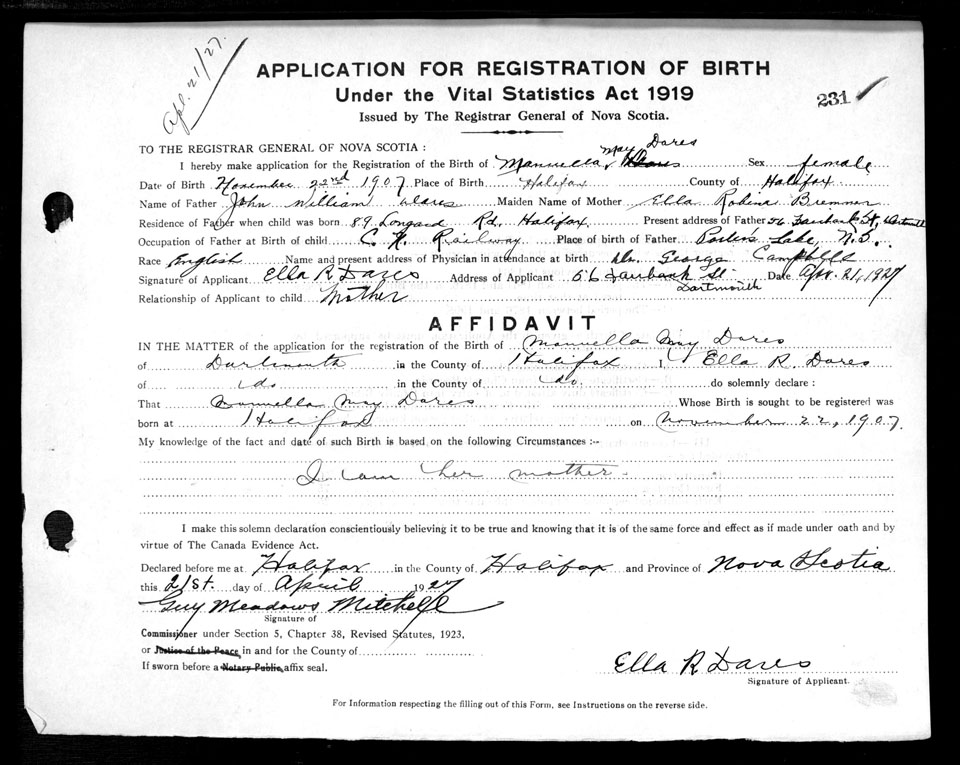 Apl. 21/27.
APPLICATION FOR REGISTRATION OF BIRTH
Under the Vital Statistics Act 1919
231
Issued by The Registrar General of Nova Scotia.
TO THE REGISTRAR GENERAL OF NOVA SCOTIA :
May Dares
I hereby make application for the Registration of the Birth of Manuella Dares Sex female
Date of Birth November 22nd 1907 Place of Birth Halifax County of Halifax
Name of Father John William Dares Maiden Name of Mother Ella Robina Bremner
Residence of Father when child was born 89 Longard Rd, Halifax. Present address of Father 56 Fairbank St, Dartmouth
Occupation of Father at Birth of child C. N. Railway Place of birth of Father Porters Lake, N.S.
Race English Name and present address of Physician in attendance at birth Dr. George Campbell
Signature of Applicant Ella R Dares Address of Applicant 56 Fairbank St. Date Apr. 21, 1927
Dartmouth
Relationship of Applicant to child Mother
AFFIDAVIT
IN THE MATTER of the application for the registration of the Birth of Manuella May Dares
of Dartmouth in the County of Halifax I, Ella R. Dares
of do. in the County of do. do solemnly declare :
That Manuella May Dares Whose Birth is sought to be registered was
born at Halifax on November 22, 1907.
My knowledge of the fact and date of such Birth is based on the following Circumstances :--
I am her mother.
I make this solemn declaration conscientiously believing it to be true and knowing that it is of the same force and effect as if made under oath and by
virtue of The Canada Evidence Act.
Declared before me at Halifax in the County of Halifax and Province of Nova Scotia
this 21st. day of April 1927
Guy Meadows Mitchell
Signature of
Commissioner under Section 5, Chapter 38, Revised Statutes, 1923,
or Justice of the Peace in and for the County of
If sworn before a Notary Public, affix seal.
Ella R Dares
Signature of Applicant.
For Information respecting the filling out of this Form, see Instructions on the reverse side.